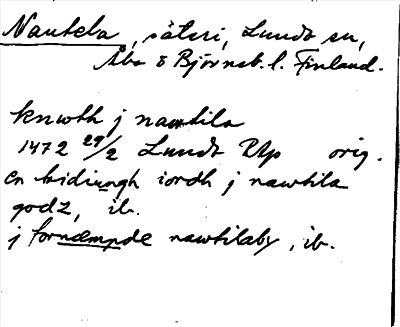 Nautela, säteri, Lundo sn,
Åbo & Björneb. l. Finland.
knwth j nawtila
1472 29/2 Lundo Up orig.
en tridiungh iordh j nawtila
godz, ib.
j fornæmpde nawtilaby, ib.